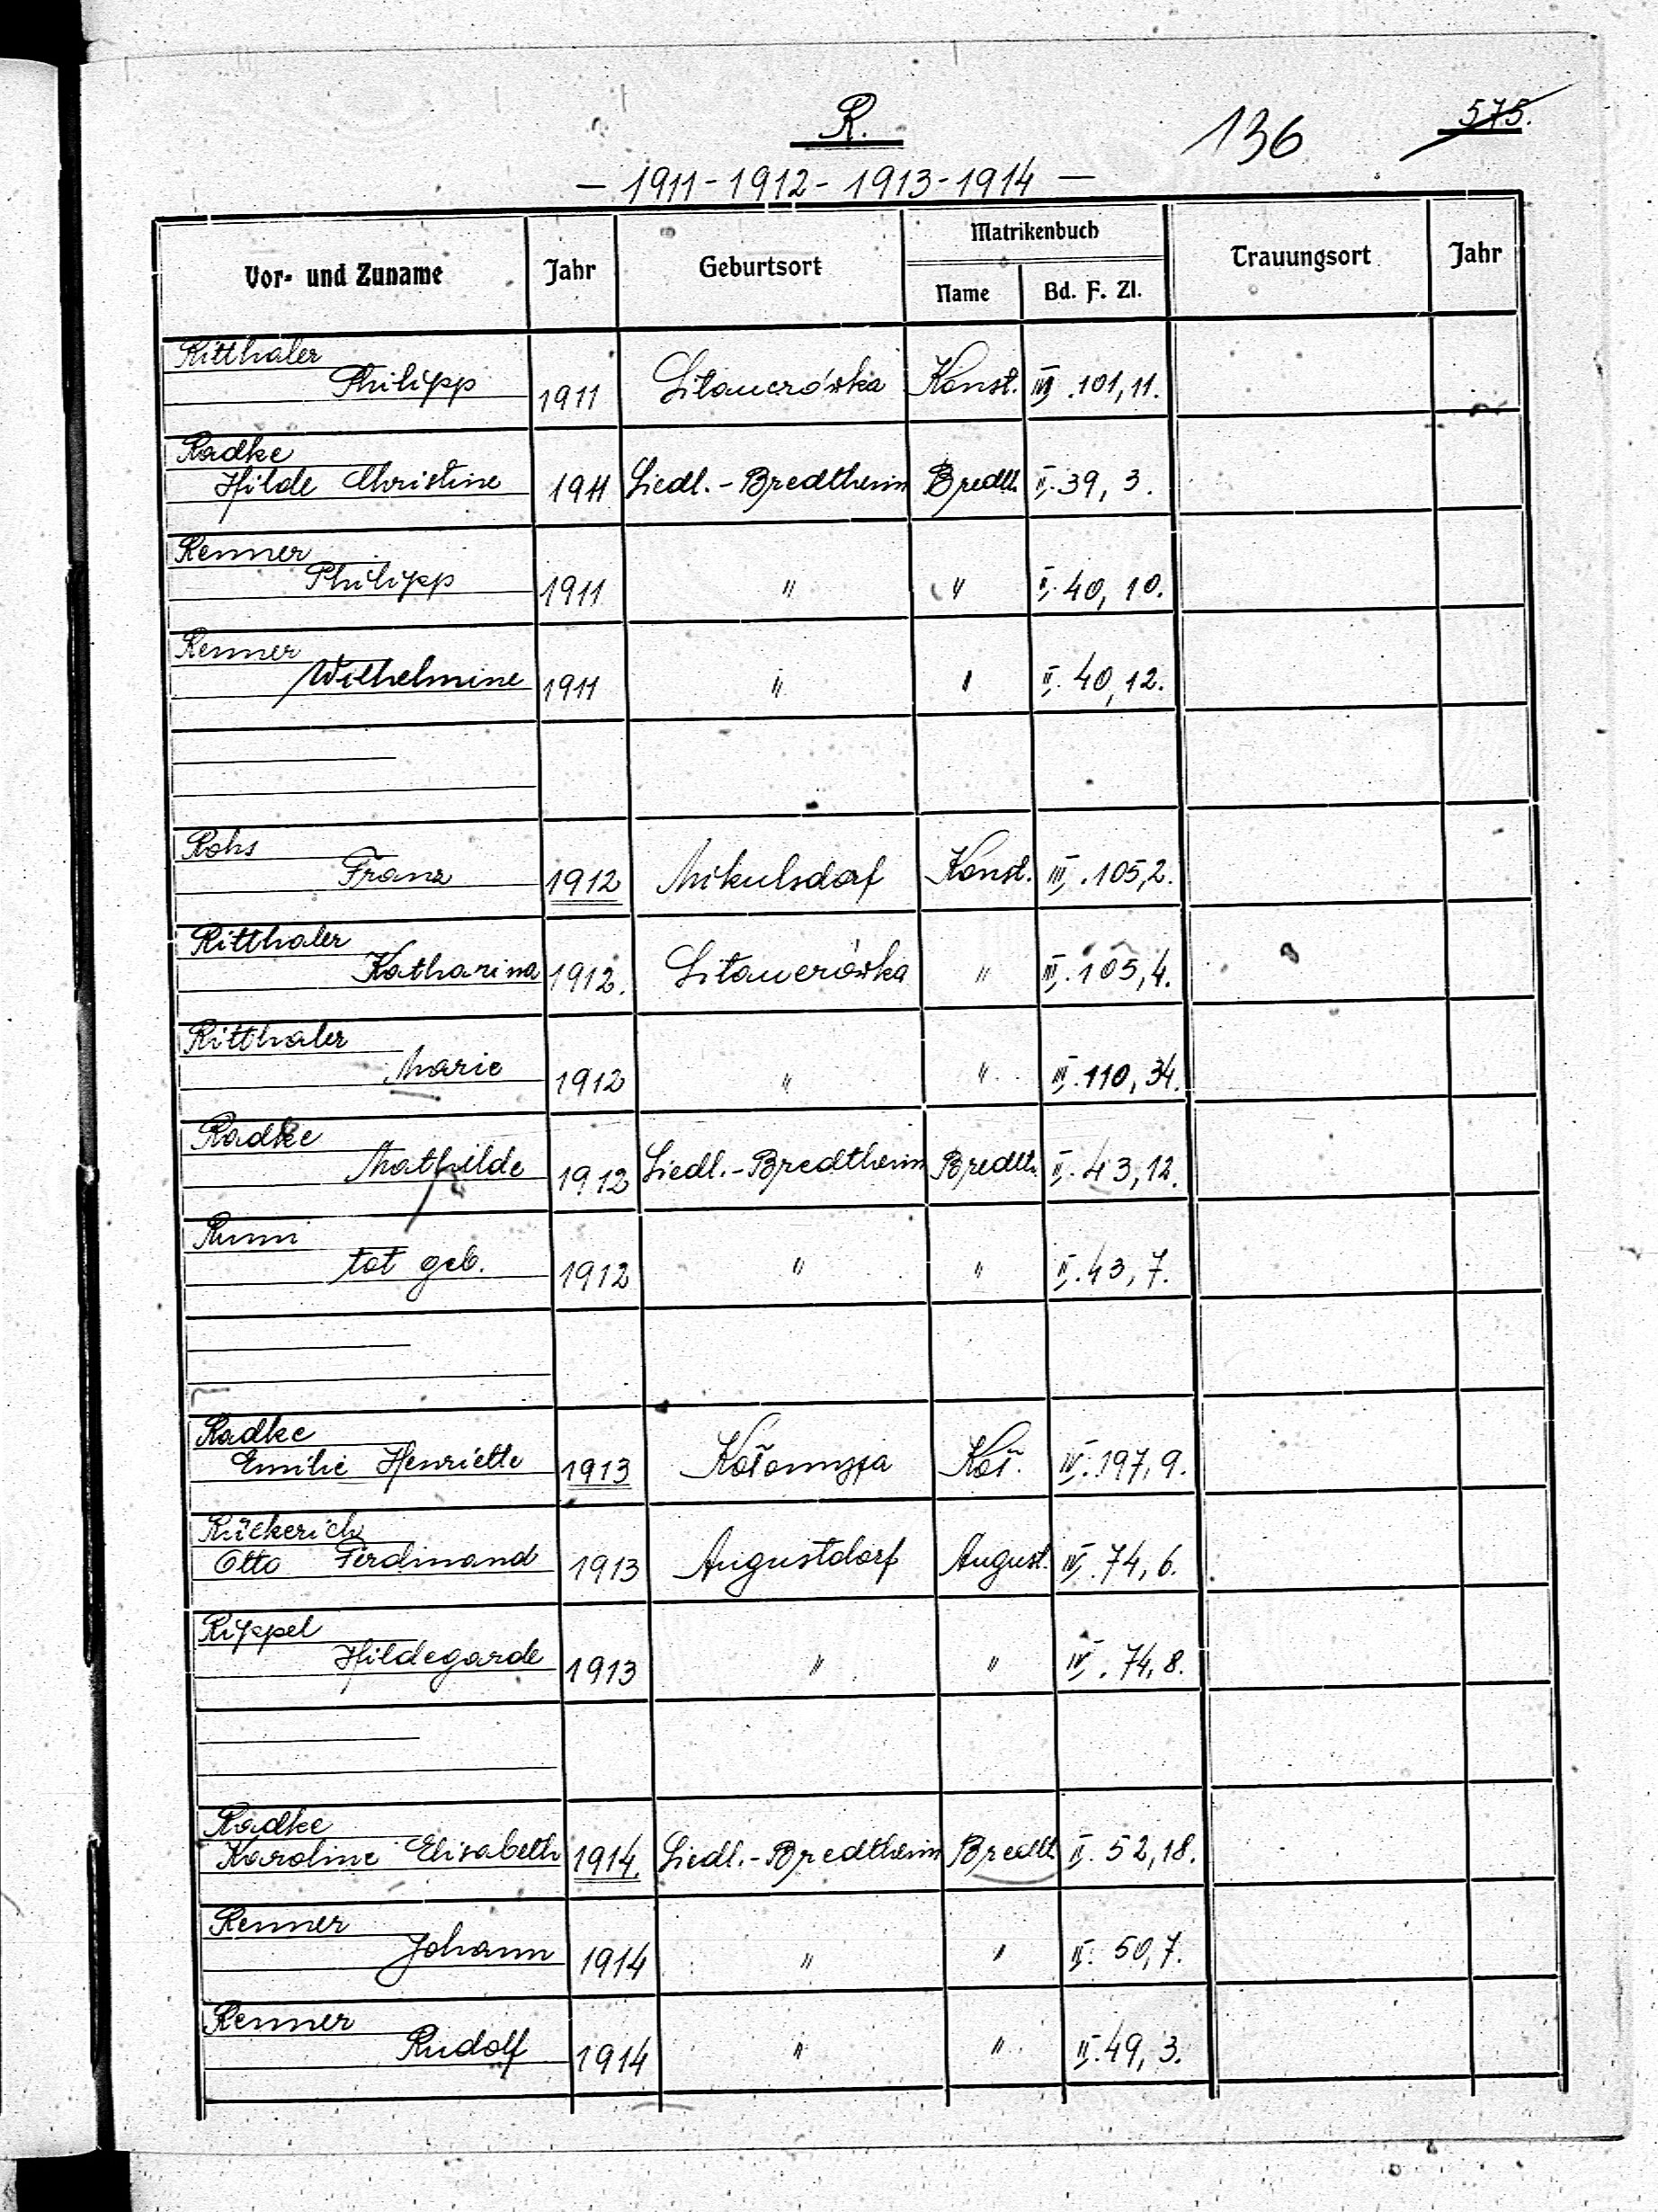 R.
136
575.
— 1911 - 1912 - 1913 - 1914 —
Vor- und Zuname Jahr Geburtsort Matrikenbuch Trauungsort Jahr
Name Bd. F. Zl.
Ritthaler
Philipp 1911 Sitauerówka Konst. III. 101, 11.
Radke
Hilde Christine 1911 Siedl.-Bredtheim Bredth. II. 39, 3.
Renner
Philipp 1911 " " II. 40, 10.
Renner
Wilhelmine 1911 " " II. 40, 12.
Rohs
Franz 1912 Mikulsdorf Konst. III. 105, 2.
Ritthaler
Katharina 1912. Sitauerówka " III. 105, 4.
Ritthaler
Marie 1912 " " III. 110, 34.
Radke
Mathilde 1912 Siedl.-Bredtheim Bredth. II. 43, 12.
tot geb. 1912 " " II. 43, 7.
Radke
Emilie Henriette 1913 Kołomyja Koł. IV. 197, 9.
Rückerich
Otto Ferdinand 1913 Augustdorf August. IV. 74, 6.
Rippel
Hildegarde 1913 " " IV. 74, 8.
Radke
Karoline Elisabeth 1914. Siedl.-Bredtheim Bredth. II. 52, 18.
Renner
Johann 1914 " " II. 50, 7.
Renner
Rudolf 1914 " " II. 49, 3.